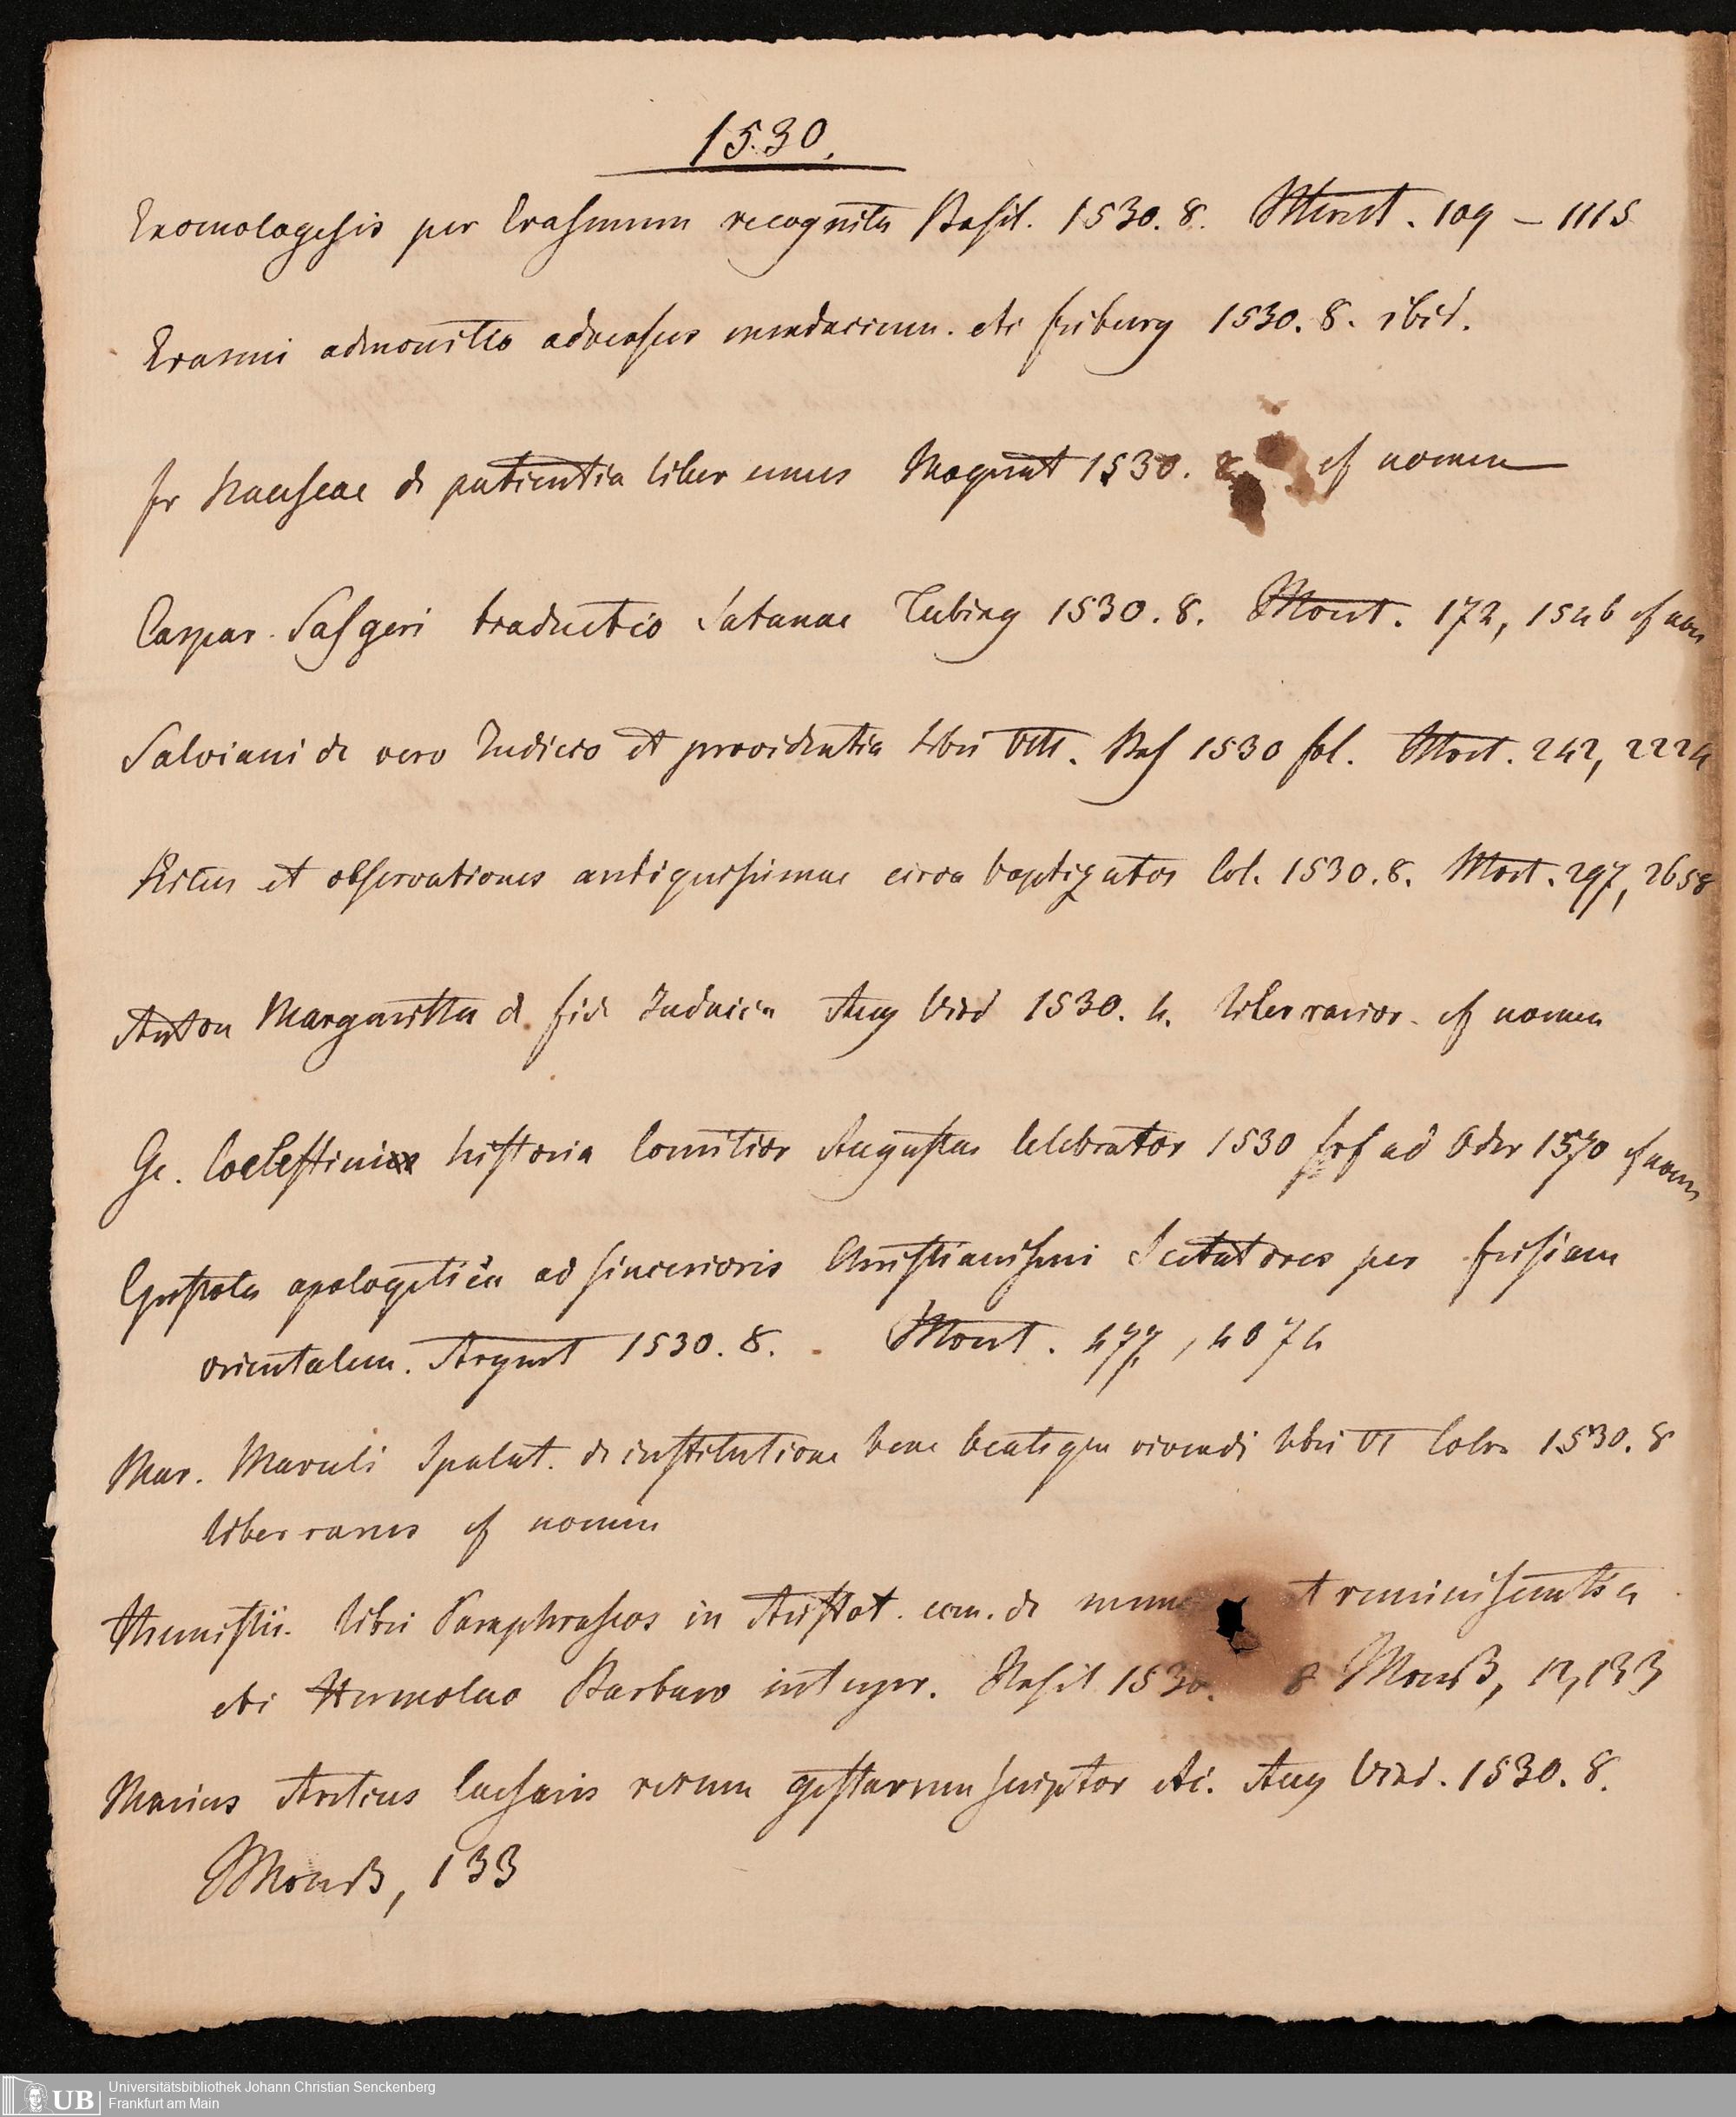 1530.
Exomologesis per Erasmum recognita Basil. 1530. 8. Mont. 109 – 1115
Erasmi admonitio adversus mendacium. etc friburg 1530. 8. ibid.
fr Nauseae de patientia liber unus Mogunt 1530. 8 cf nomen
Caspar. Sasgeri traductio Satanae Tubing 1530. 8. Mont. 172, 1546 cf nom
Salviani de vero Iudicio et providentia libri VIII. Bas 1530 fol. Mont. 242, 2224
Ritus et observationes antiquissimae circa baptizatos Col. 1530. 8. Mont. 297, 2658
Anton Margaritha d. fide Judaica Aug Vind 1530. 4. liber rarior. cf nomen
Ge. Coelestini historia Comitior Augustae Celebrator 1530 frf ad Oder 1570 cf nomen
Epistola apologetica ad sincerioris Christianismi Sectatores per frisiam
orientalem. Argent 1530. 8. Mont. 477, 4074
Mar. Maruli Spalat. de institutione bene beateque vivendi libri VI Colon 1530. 8
liber rarus cf nomen
Themistii. libri Paraphraseos in Aristot. com. de mem t reminiscentia
etc Hermolao Barbaro interpr. Basil 1530. 8 Mont, 12, 133
Marius Areticus Caesaris rerum gestarum scriptor etc. Aug Vind. 1530. 8.
Mont, 133
UB
Universitätsbibliothek Johann Christian Senckenberg
Frankfurt am Main